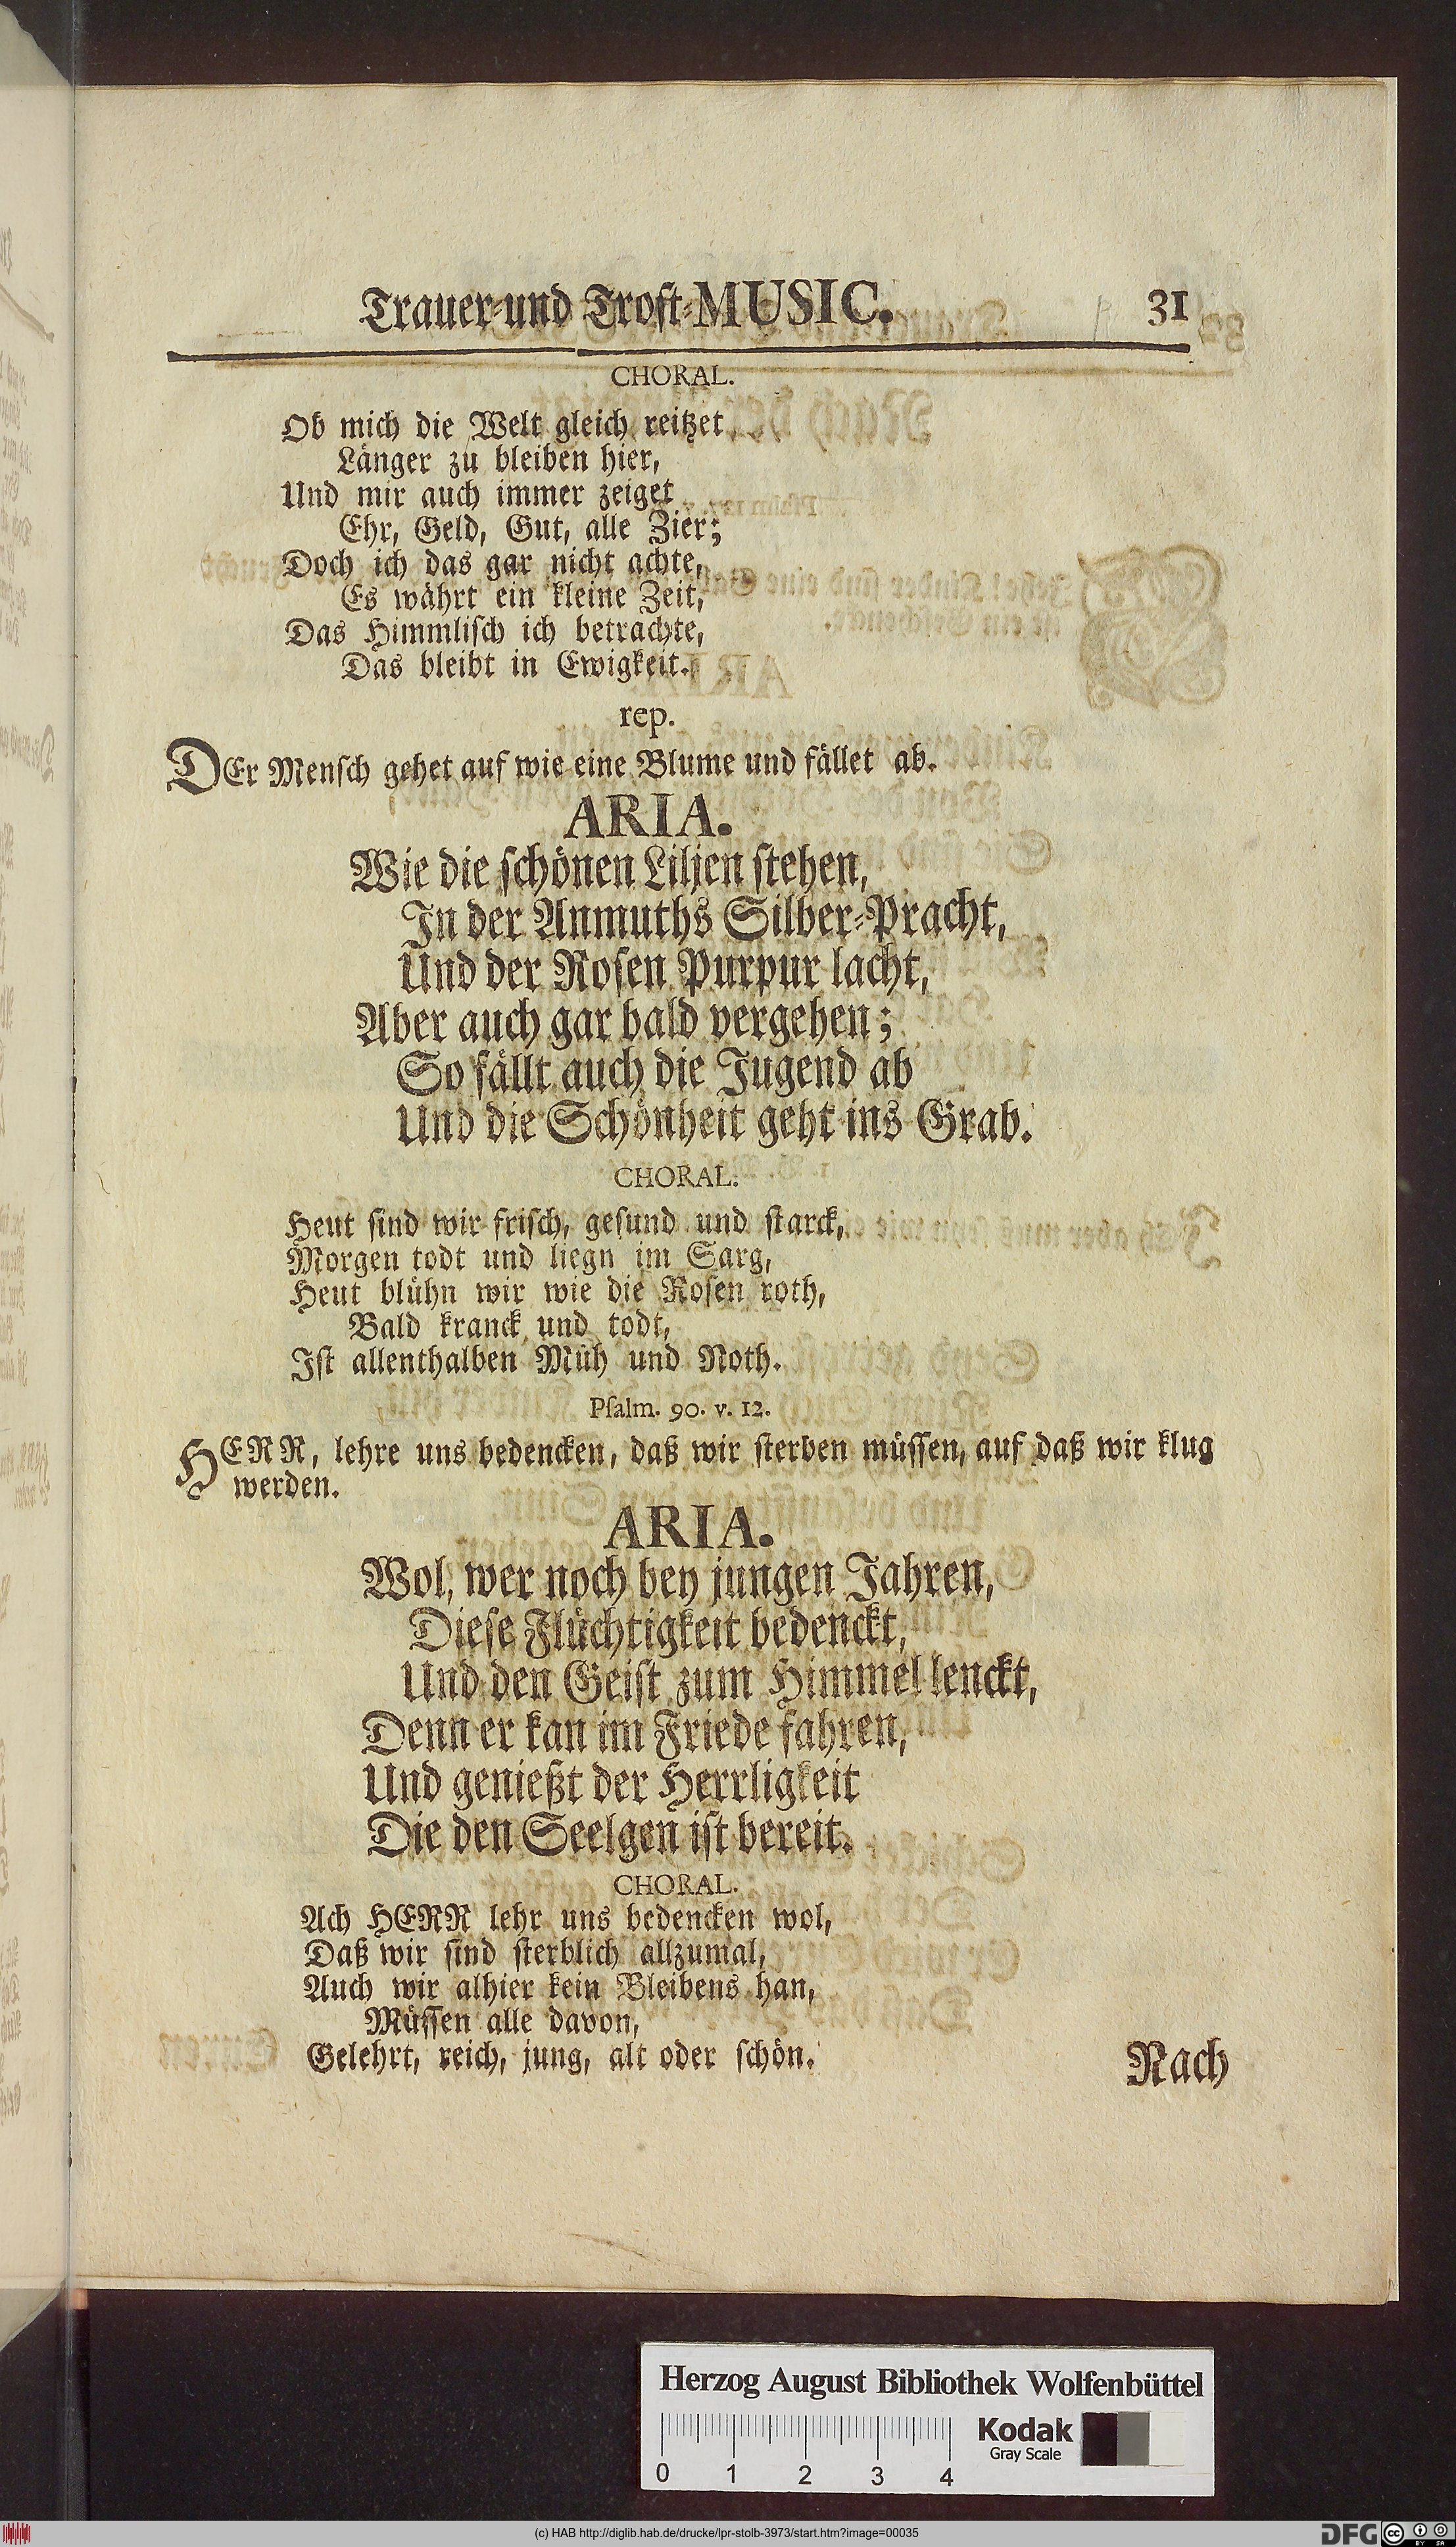 Trauer-und Trost-MUSIC. 31
CHORAL.
Ob mich die Welt gleich reitzet
Länger zu bleiben hier,
Und mir auch immer zeiget
Ehr, Geld, Gut, alle Zier;
Doch ich das gar nicht achte,
Es währt ein kleine Zeit,
Das Himmlisch ich betrachte,
Das bleibt in Ewigkeit.
rep.
DEr Mensch gehet auf wie eine Blume und fället ab.
ARIA.
Wie die schönen Liljen stehen,
In der Anmuths Silber-Pracht,
Und der Rosen Purpur lacht,
Aber auch gar bald vergehen;
So fällt auch die Jugend ab
Und die Schönheit geht ins Grab.
CHORAL.
Heut sind wir frisch, gesund und starck,
Morgen todt und liegn im Sarg,
Heut blühn wir wie die Rosen roth,
Bald kranck und todt,
Ist allenthalben Müh und Noth.
Psalm. 90. v. 12.
HERR, lehre uns bedencken, daß wir sterben müssen, auf daß wir klug
werden.
ARIA.
Wol, wer noch bey jungen Jahren,
Diese Flüchtigkeit bedenckt,
Und den Geist zum Himmel lenckt,
Denn er kan im Friede fahren,
Und genießt der Herrligkeit
Die den Seelgen ist bereit.
CHORAL.
Ach HERR lehr uns bedencken wol,
Daß wir sind sterblich allzumal,
Auch wir alhier kein Bleibens han,
Müssen alle davon,
Gelehrt, reich, jung, alt oder schön.
Nach
Herzog August Bibliothek Wolfenbüttel
Kodak
Gray Scale
0 1 2 3 4
(c) HAB http://diglib.hab.de/drucke/lpr-stolb-3973/start.htm?image=00035
DFG cc BY SA